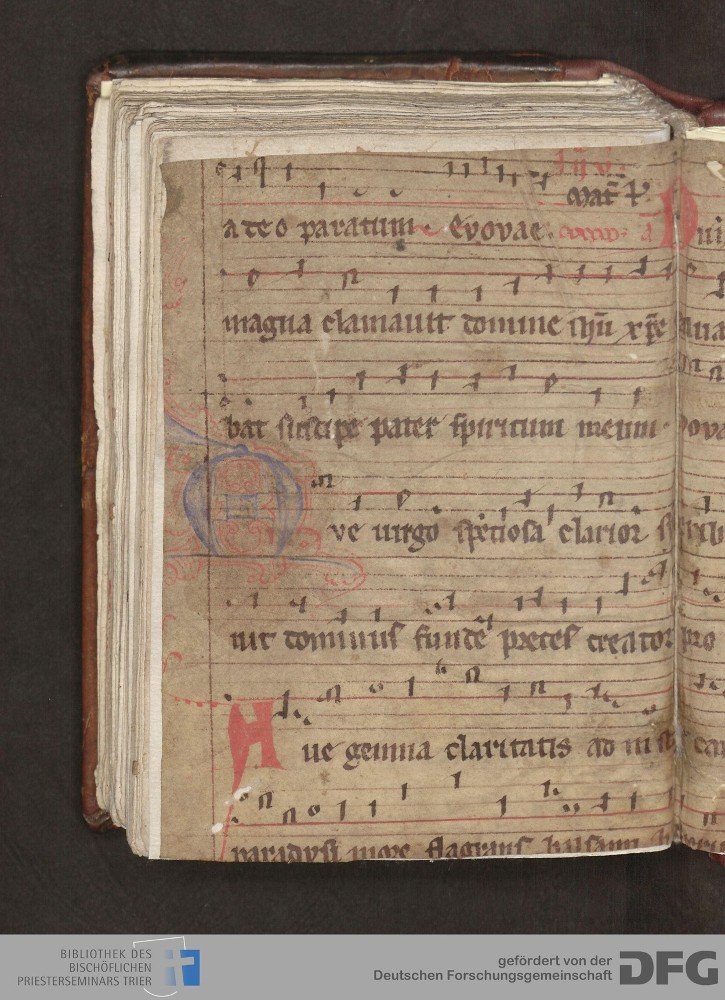 Mat̄ ℣.
a te o paratum. Evovae.
magna clamauit domine ihū xp̄e
bat suscipe pater spiritum meum.
Ave uirgo spēciosa clarior
uit dominus funde preces creatori pro
Aue gemma claritatis ad
paradysi more flagrans balsami
BIBLIOTHEK DES
BISCHÖFLICHEN
PRIESTERSEMINARS TRIER
gefördert von der
Deutschen Forschungsgemeinschaft DFG